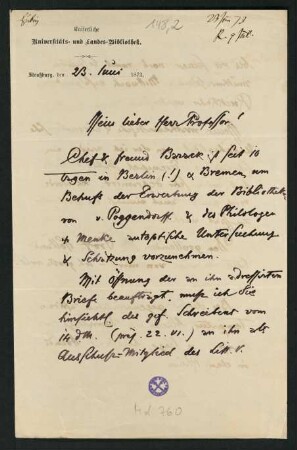 148,2
Kaiserliche
Universitäts- und Landes-Bibliothek.
Strassburg, den 23. Juni 187
Mein lieber Herr Professor!
Chef & Freund Barack ist seit 10
Tagen in Berlin (!) & Bremen, um
Behufs der Erwerbung der Bibliotheken
von v. Poggendorff & des Philologen
Menke autoptische Untersuchung
& Schätzung vorzunehmen.
Mit Öffnung der an ihn adressirten
Briefe beauftragt, muß ich Sie
hinsichtl. des gef. Schreibens vom
14 dM. (präs. 22. VI.) an ihn als
Ausschuß-Mitglied des Litt. V.
Md 760